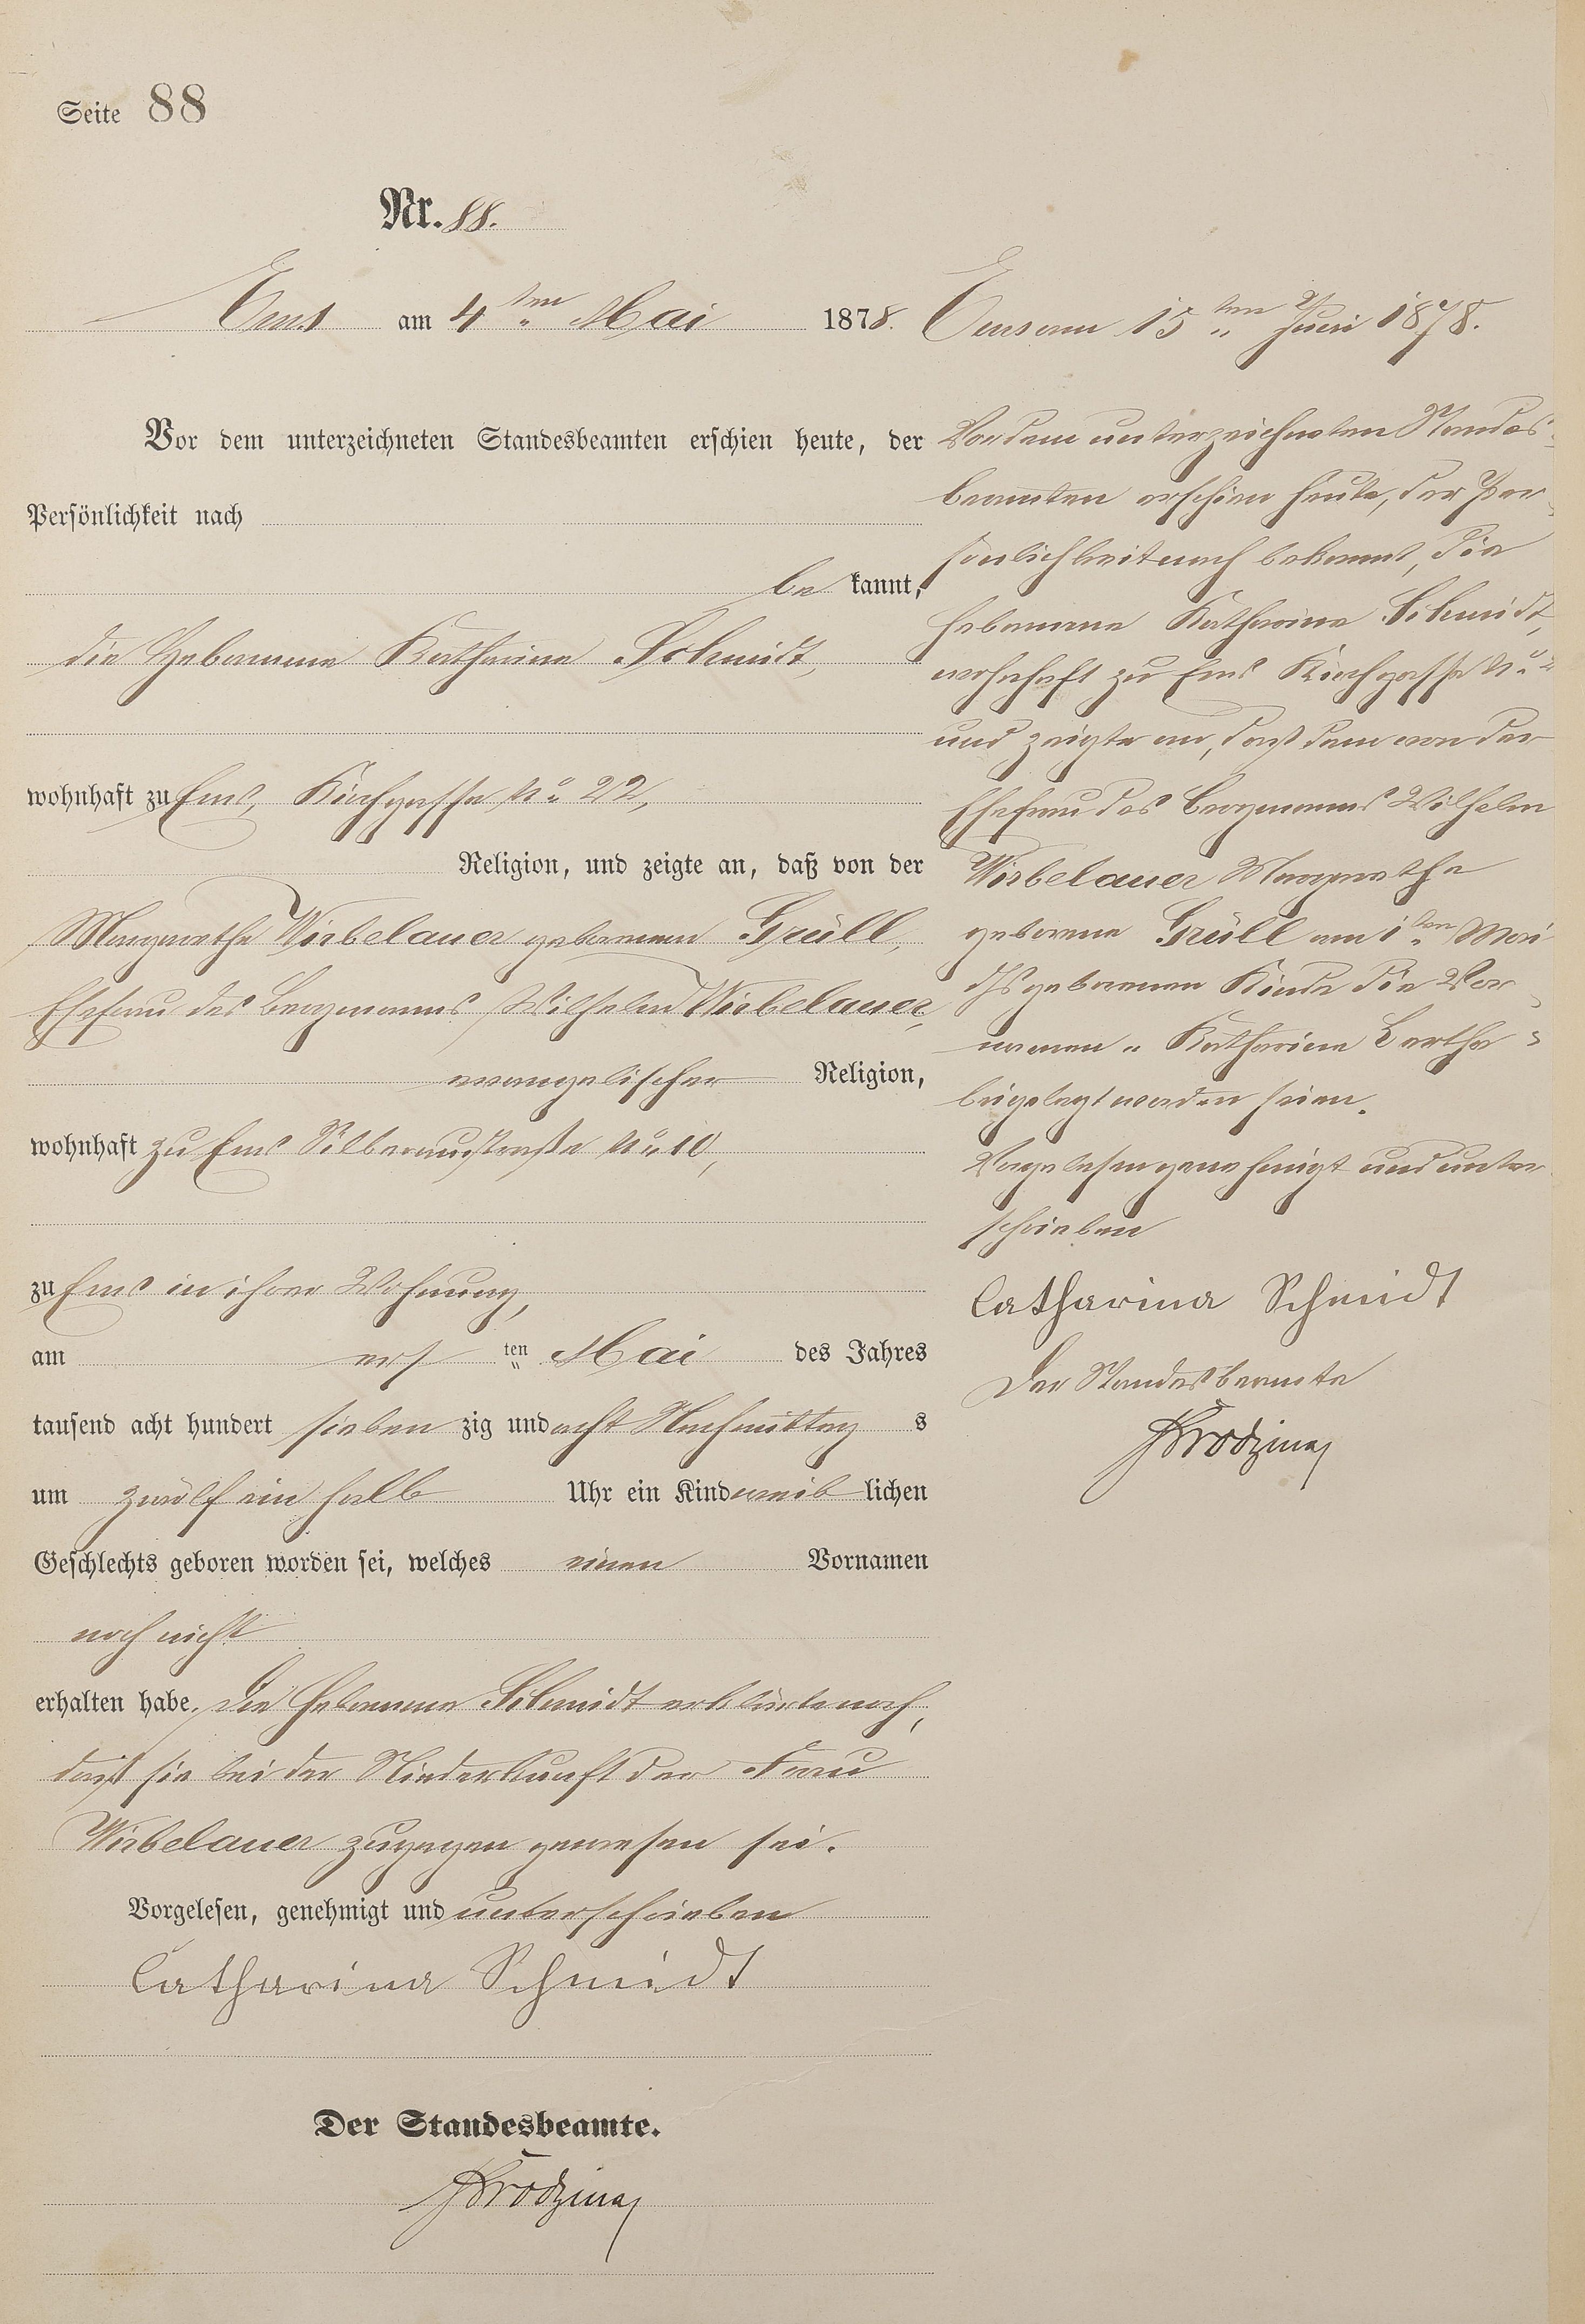 Seite 88
Nr. 88.
Ems am 4ten Mai 1878.
Vor dem unterzeichneten Standesbeamten erschien heute, der
Persönlichkeit nach
be kannt,
die Hebamme Katharina Schmidt,
wohnhaft zu Ems, Kirchgasse No 22,
Religion, und zeigte an, daß von der
Margarethe Wirbelauer geborenen Grüll,
Ehefrau des Bergmanns Wilhelm Wirbelauer,
evangelischer Religion,
wohnhaft zu Ems Silberaustraße No 10,
zu Ems in ihrer Wohnung,
am ersten Mai des Jahres
tausend acht hundert sieben zig und acht Nachmittags
um zwölf ein halb Uhr ein Kind weib lichen
Geschlechts geboren worden sei, welches einen Vornamen
noch nicht
erhalten habe. Die Hebamme Schmidt erklärte noch,
daß sie bei der Niederkunft der Frau
Wirbelauer zugegen gewesen sei.
Vorgelesen, genehmigt und unterschrieben
Catharina Schmidt
Der Standesbeamte.
Ems am 15ten Juni 1878.
Vor dem unterzeichneten Standes-
beamten erschien heute, der Per-
sönlichkeit nach bekannt, die
Hebamme Katharina Schmidt,
wohnhaft zu Ems Kirchgasse No
und zeigte an, daß dem von der
Ehefrau des Bergmanns Wilhelm
Wirbelauer Margarethe
geborene Grüll am 1ten Mai
geborenen Kinde die Vor-
namen „Katharina Bertha"
beigelegt worden seien.
Vorgelesen genehmigt und unter-
schrieben
Catharina Schmidt
Der Standesbeamte